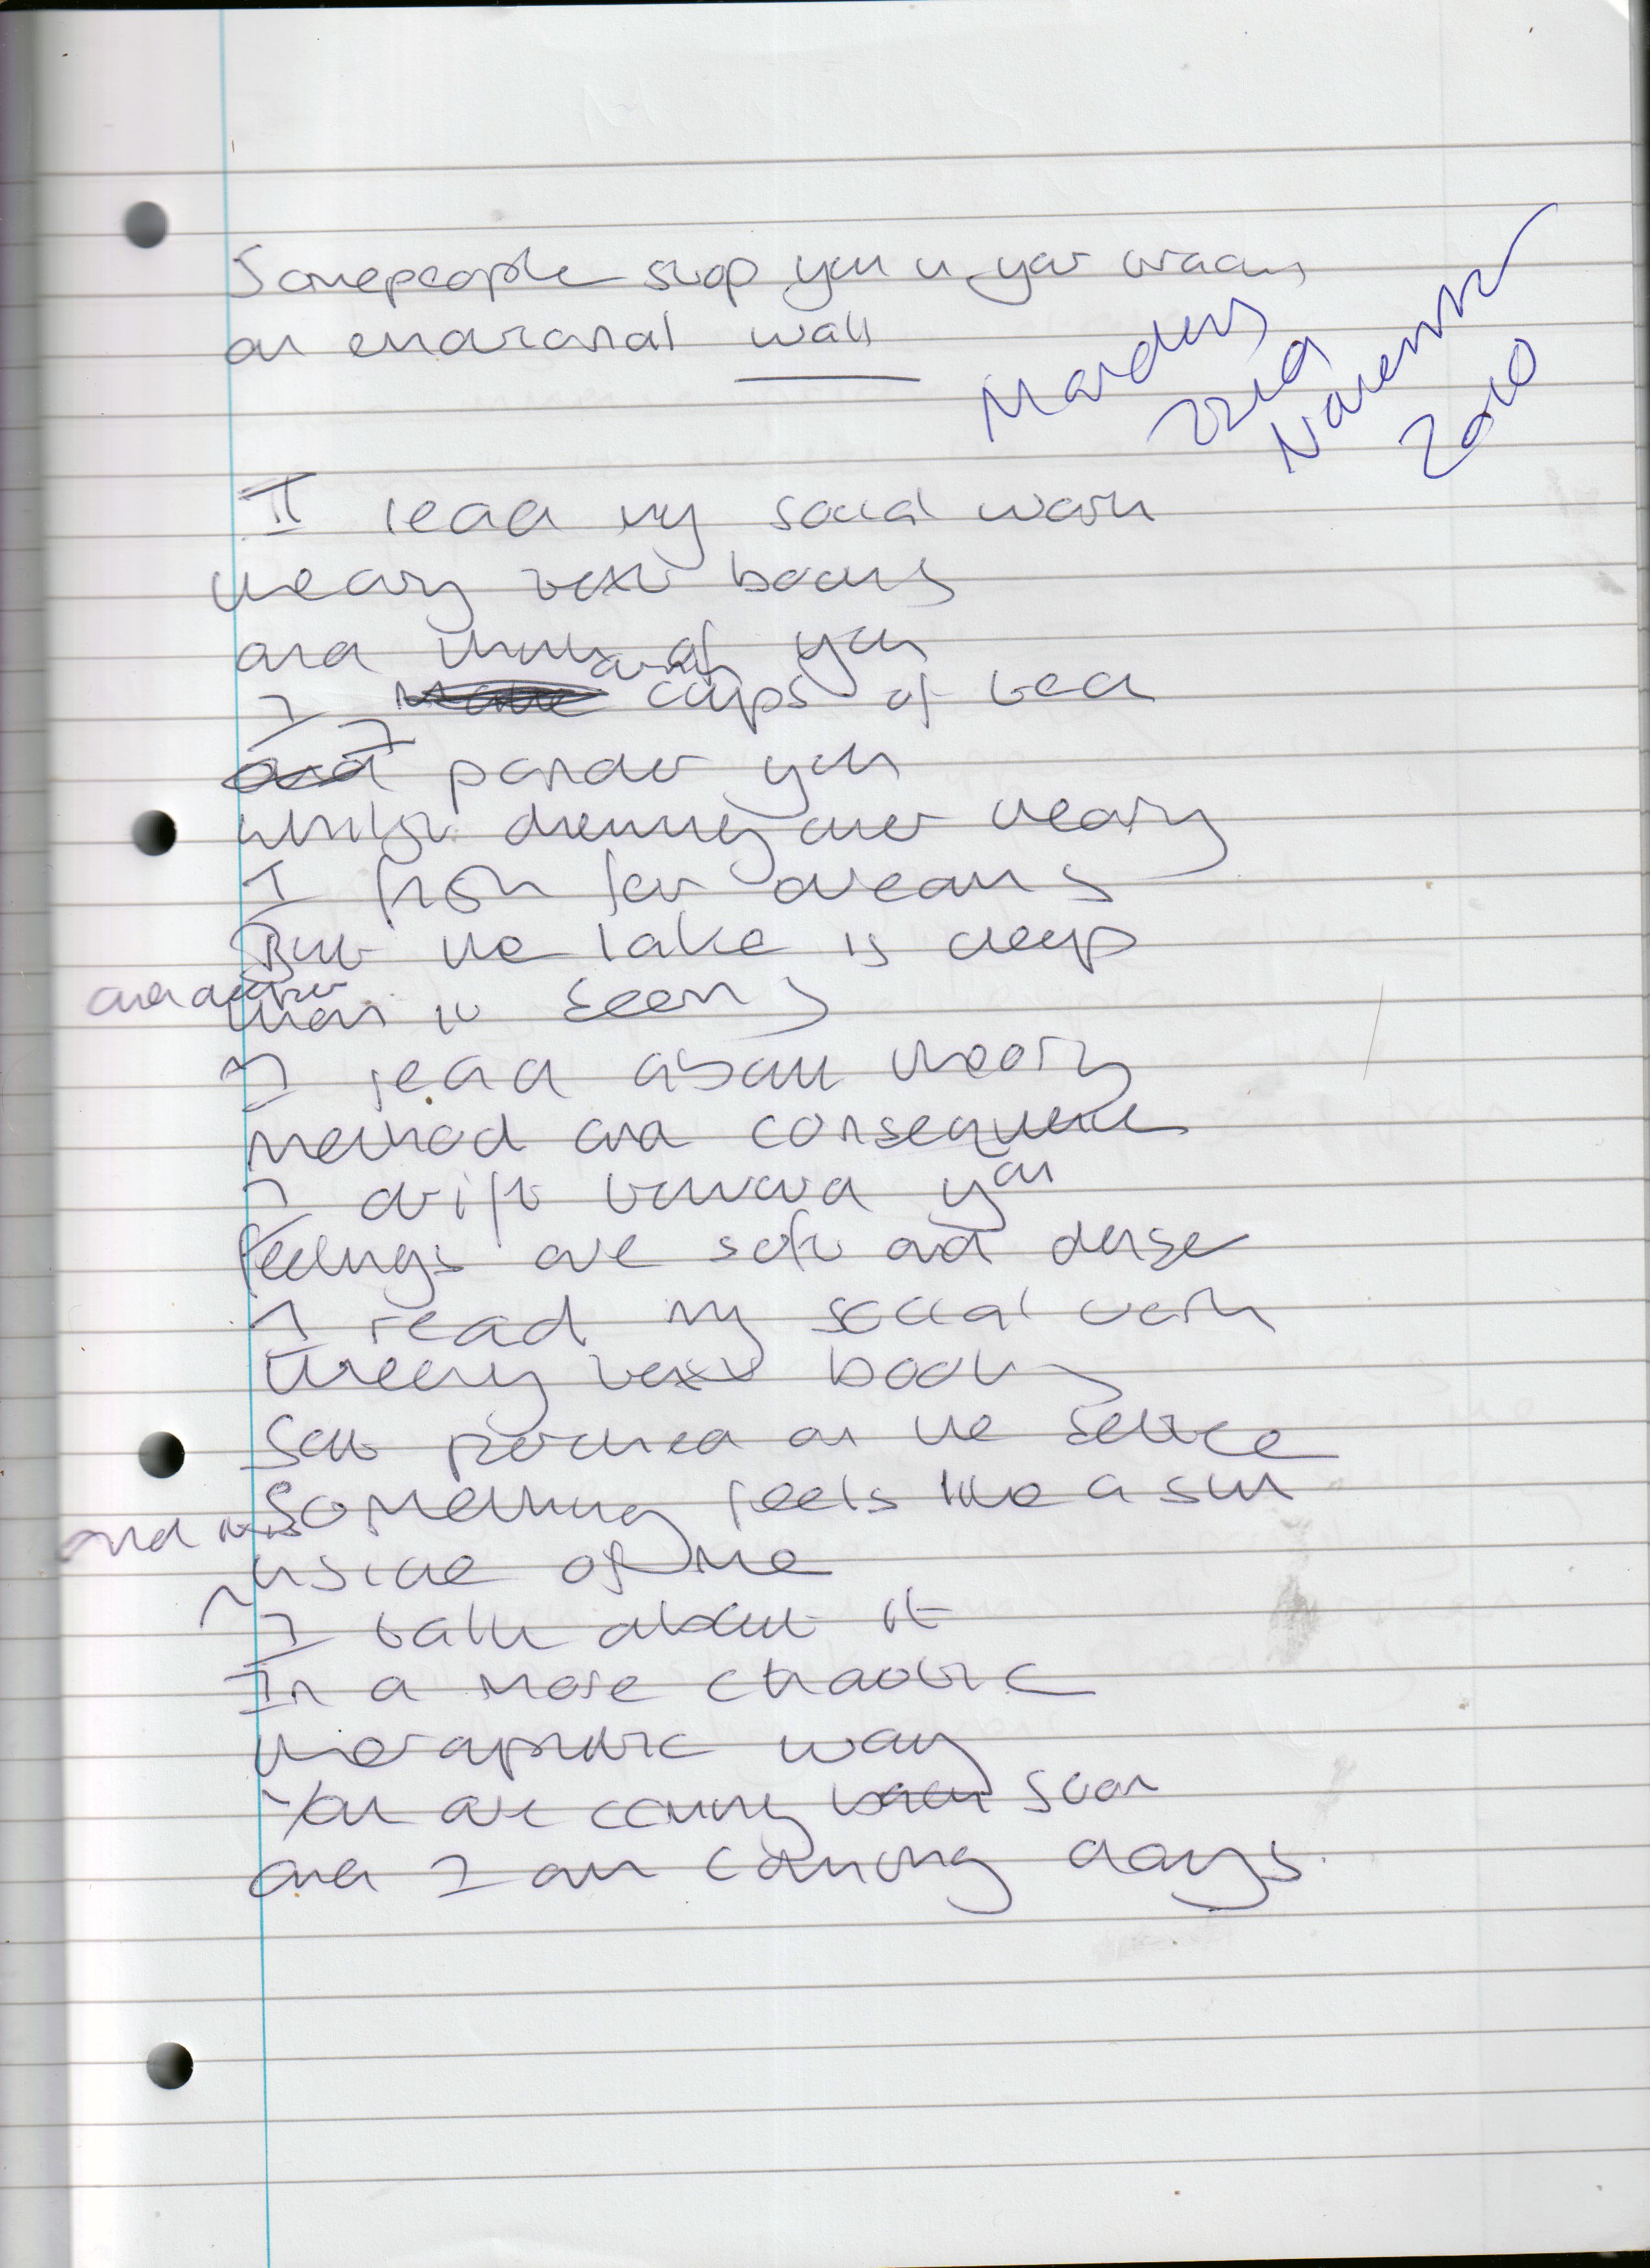 Some people stop you in your tracks
an emotional wall
Monday
22nd
November
2010
I read my social work
theory text books
and think of you
I drink cups of tea
I ponder you
whilst dreaming over theory
I fish for dreams
But the lake is deep
and deeper than it seems
I read about theory
method and consequence
I drift toward you
feelings are soft and dense
I read my social work
theory text books
Sat perched on the settee
Something feels like a sun
and it is inside of me
I talk about it
In a more chaotic
therapeutic way
You are coming back soon
and I am counting days.